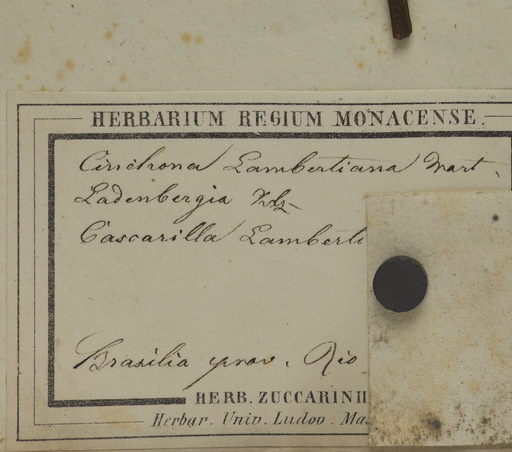 HERBARIUM REGIUM MONACENSE.
Cinchona Lambertiana Mart.
Ladenbergia Klz
Cascarilla Lamberti
Brasilia prov. Rio
HERB. ZUCCARINII
Herbar. Univ. Ludov. Ma